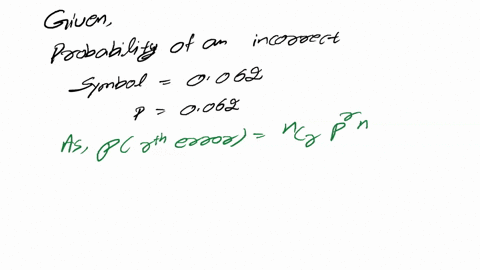 Given,
Probability of an incorrect
Symbol = 0.062
p = 0.062
As, p( rth error) = nCr p^r n